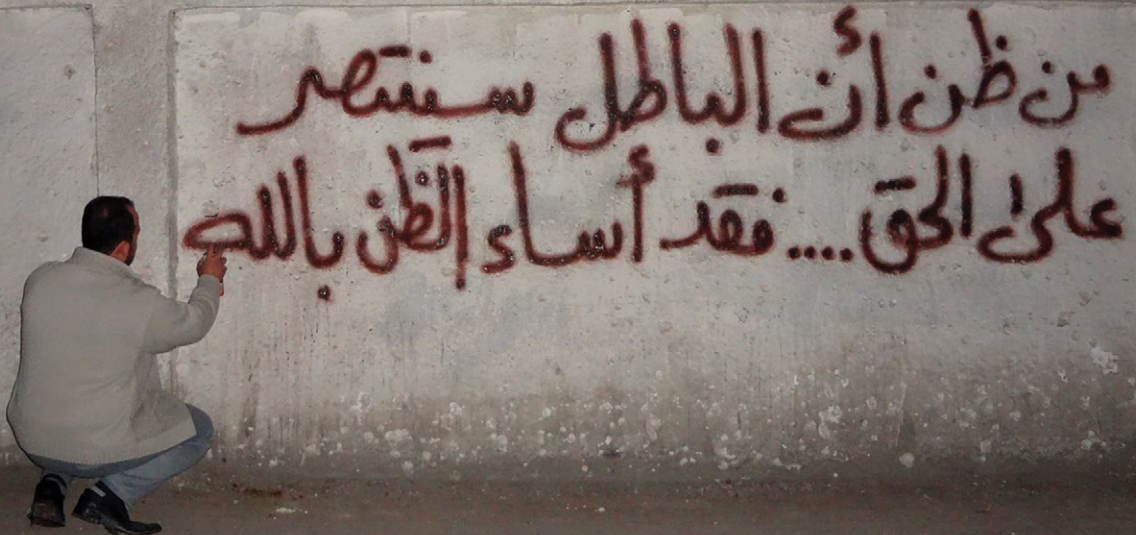 من ظن أن الباطل سينتصر
على الحق .... فقد أساء الظن بالله